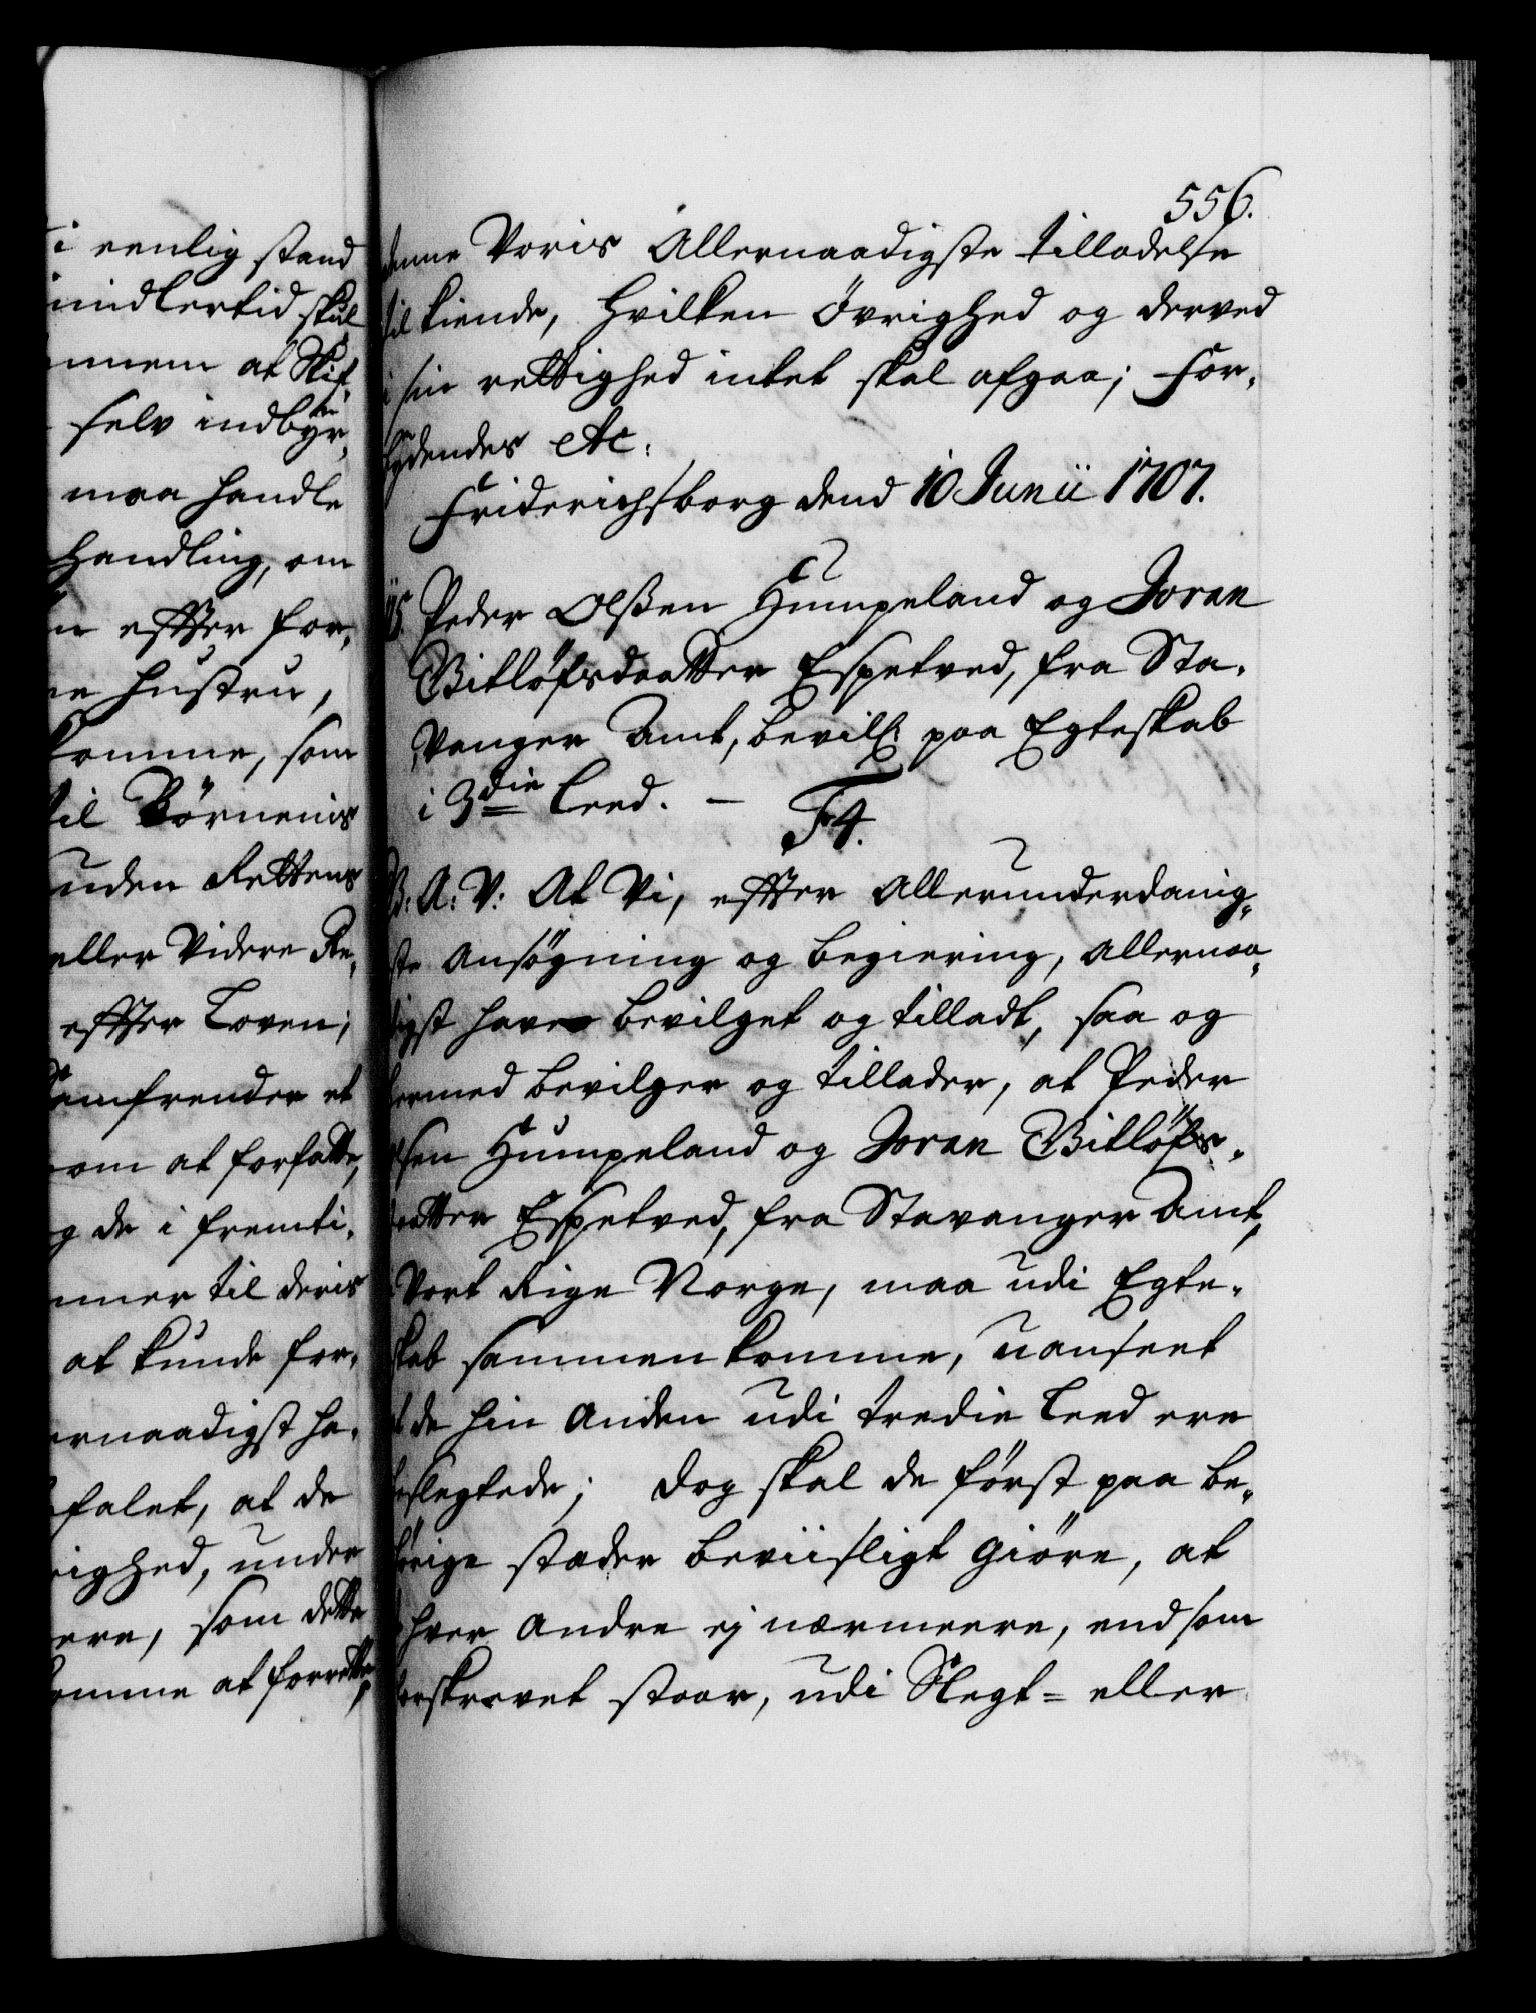 i eenlig stand
imidlertid skul
nnem at Skif
selv indbyr,
maa handle
Handling, om
n effter for,
ne Hustru,
komme, som
til Börnenis
uden Rettens
eller Videre Re,
effter Loven;
Samfrender et
som at forfatte,
g de i fremti,
mmer til deris
at kunde for,
ernaadigst ha,
falet, at de
righed, under
ere, som dette
komme at forrette,
556.
denne Voris Allernaadigste tilladelse
tilkiende, hvilken Övrighed og derved
i sin rettighed intet skal afgaa; For,
bydendes etc:
Friderichsborg dend 10 Junii 1707.
Peder Olßen Humpeland og Joran
Bitlöfsdaatter Espetved, fra Sta,
vanger Amt, bevill: paa Egteskab
i 3die Leed. — F4.
B: A: V: At Vi, effter allerunderdanig,
ste ansögning og begiering, allernaa,
digst have bevilget og tilladt, saa og
hermed bevilger og tillader, at Peder
Olsen Humpeland og Joran Bitlöfs,
daatter Espetved, fra Stavanger Amt,
i Vort Rige Norge, maa udi Egte,
skab sammenkomme, uanseet
at de hin anden udi tredie Leed ere
beslegtede; dog skal de först paa be,
hörige stæder beviisligt giöre, at
de hver andre ej nærmeere, end som
forskrevet staar, udi Slegt= eller